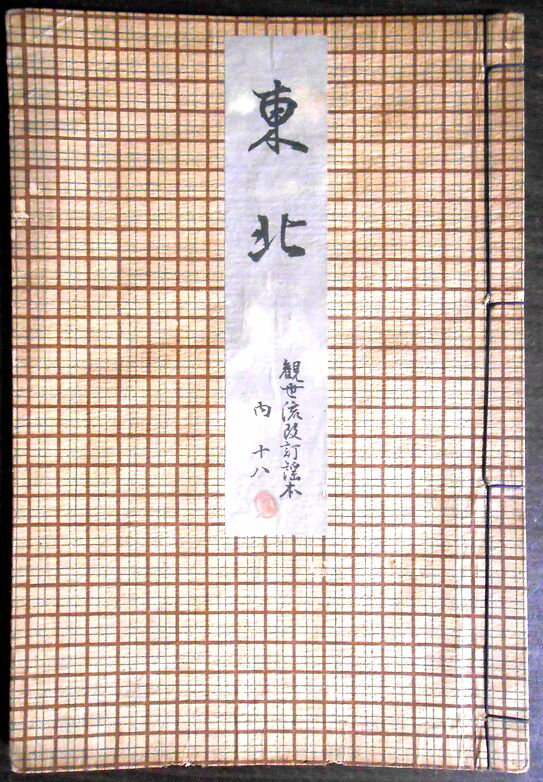 東北
観世流改訂謡本
内十八